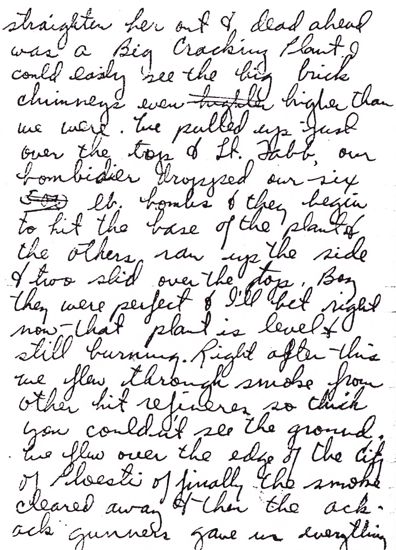 straighten her out & dead ahead
was a Big Cracking Plant I
could easily see the big brick
chimneys even higher than
we were. We pulled up just
over the top & Lt. Fabb, our
bombidier dropped our six
lb. bombs & they begin
to hit the base of the plant &
the others ran up the side
& two slid over the top. Boy
they were perfect & I'll bet right
now that plant is level &
still burning. Right after this
we flew through smoke from
other hit refineres so thick
you couldn't see the ground.
We flew over the edge of the city
of Ploesti & finally the smoke
cleared away & then the ack-
ack gunners gave us everything